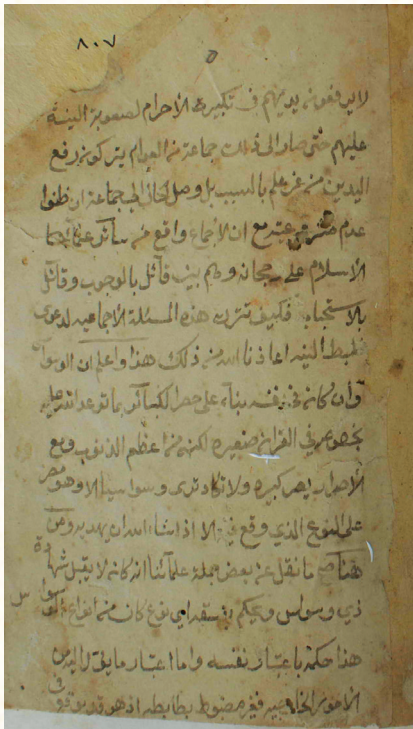 ٨٠٧
لا يرفعون يديهم في تكبيرة الاحرام لصعوبة النية
عليهم حتى صار الى ذلك جماعة من العوام يتركون رفع
اليدين من غير علم بالسبب بل وصل الحال الى جماعة ان ظنوا
عدم مع ان الاجماع واقع من سائر علماء
الاسلام على رجحانه وهم بين قائل بالوجوب وقائل
بالاستحباب فكيف تترك هذه المسئلة الاجماعيه لدعوى
النيه اعاذنا الله من ذلك هذا واعلم ان الوسواس
وان كان في نفسه بناء على حصر الكبائر بما توعد الله عليه
بخصوصه في القران صغيره لكنه من اعظم الذنوب ومع
الاصرار يصير كبيره ولا تكاد ترى وسواسيا الا وهو مصر
على النوع الذي وقع فيه الا اذا شاء الله ان يهديه ومن
هنا صح ما نقل عن بعض جملة علمائنا انه كان لا يقبل شهادة
ذي وسواس ويحكم بفسقه اي نوع كان من انواع الوسواس
هذا حكمه باعتبار نفسه واما اعتبار ما
الامور الخارجيه فغير مضبوط بضابطه اذ هو قد يوقع في